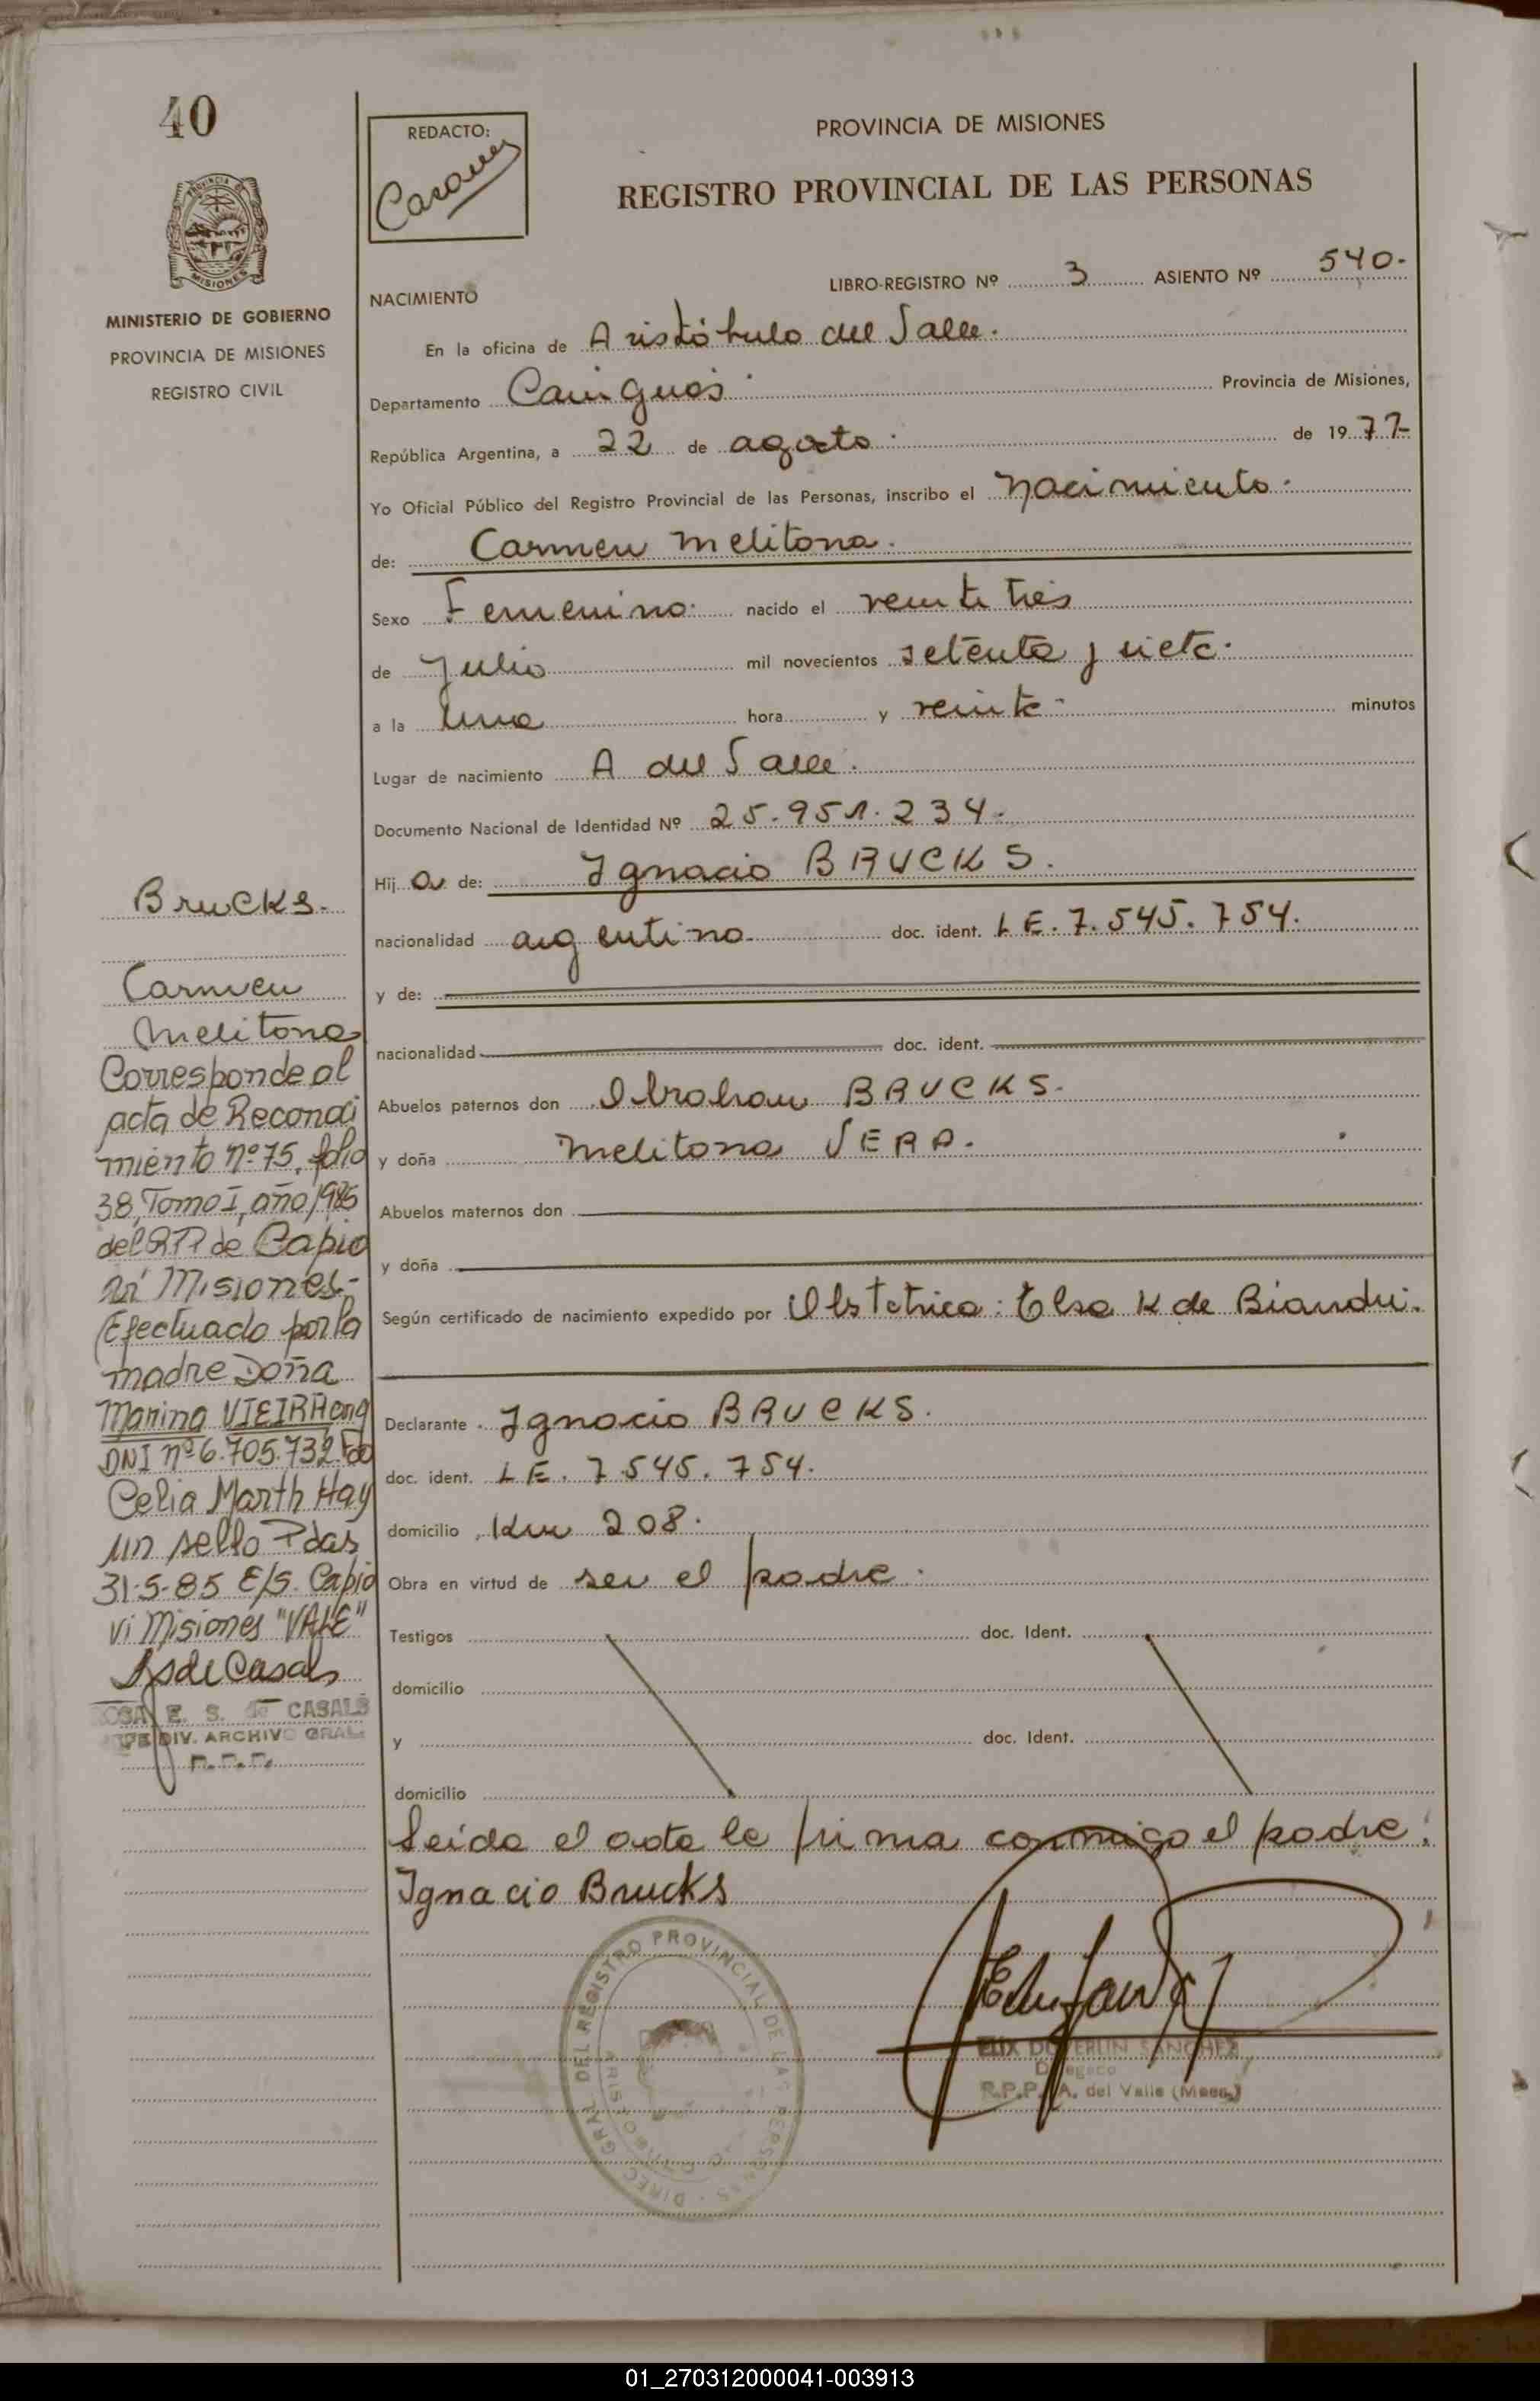 40
REDACTO:
PROVINCIA DE MISIONES
REGISTRO PROVINCIAL DE LAS PERSONAS
PROVINCIA DE
MISIONES
MINISTERIO DE GOBIERNO
PROVINCIA DE MISIONES
REGISTRO CIVIL
LIBRO-REGISTRO Nº 3 ASIENTO Nº 540.-
NACIMIENTO
En la oficina de Aristóbulo del Valle.
Departamento Cainguás. Provincia de Misiones,
República Argentina, a 22 de agosto. de 1977-
Yo Oficial Público del Registro Provincial de las Personas, inscribo el nacimiento.
de: Carmen Melitona.
Sexo Femenino. nacido el veinte tres
de Julio mil novecientos setenta y siete.
a la una hora y veinte minutos
Lugar de nacimiento A del Valle.
Documento Nacional de Identidad Nº 25.951.234.
Hija de: Ignacio BRUCKS.
nacionalidad argentino. doc. ident. L E. 7.545.754.
y de:
nacionalidad doc. ident.
Abuelos paternos don Abraham BRUCKS.
y doña Melitona VERA.
Abuelos maternos don
y doña
Según certificado de nacimiento expedido por Obstetrica: Elsa K de
Declarante Ignacio BRUCKS.
doc. ident. L E. 7.545.754.
domicilio Km 208.
Obra en virtud de ser el padre.
Testigos doc. Ident.
domicilio
y doc. Ident.
domicilio
Leída el acta la firma conmigo el padre.
Ignacio Brucks
DIREC. GRAL. DEL REGISTRO PROVINCIAL DE LAS PERSONAS
SANCHEZ
R.P.P. A. del Valle (Mnes.)
Brucks.
Carmen
Melitona
Corresponde al
acta de Reconoci
miento nº 75, folio
38, Tomo I, año 1985
del RPP de Capio
ví Misiones.-
Efectuado por la
madre Doña
Marina VIEIRA arg
DNI nº 6.705.732 Fdo
Celia Marth Hay
un sello Pdas
31-5-85 E/S. Capio
vi Misiones "VALE"
ROSA E. S. de CASALS
JEFE DIV. ARCHIVO GRAL.
R.P.P.
01_270312000041-003913